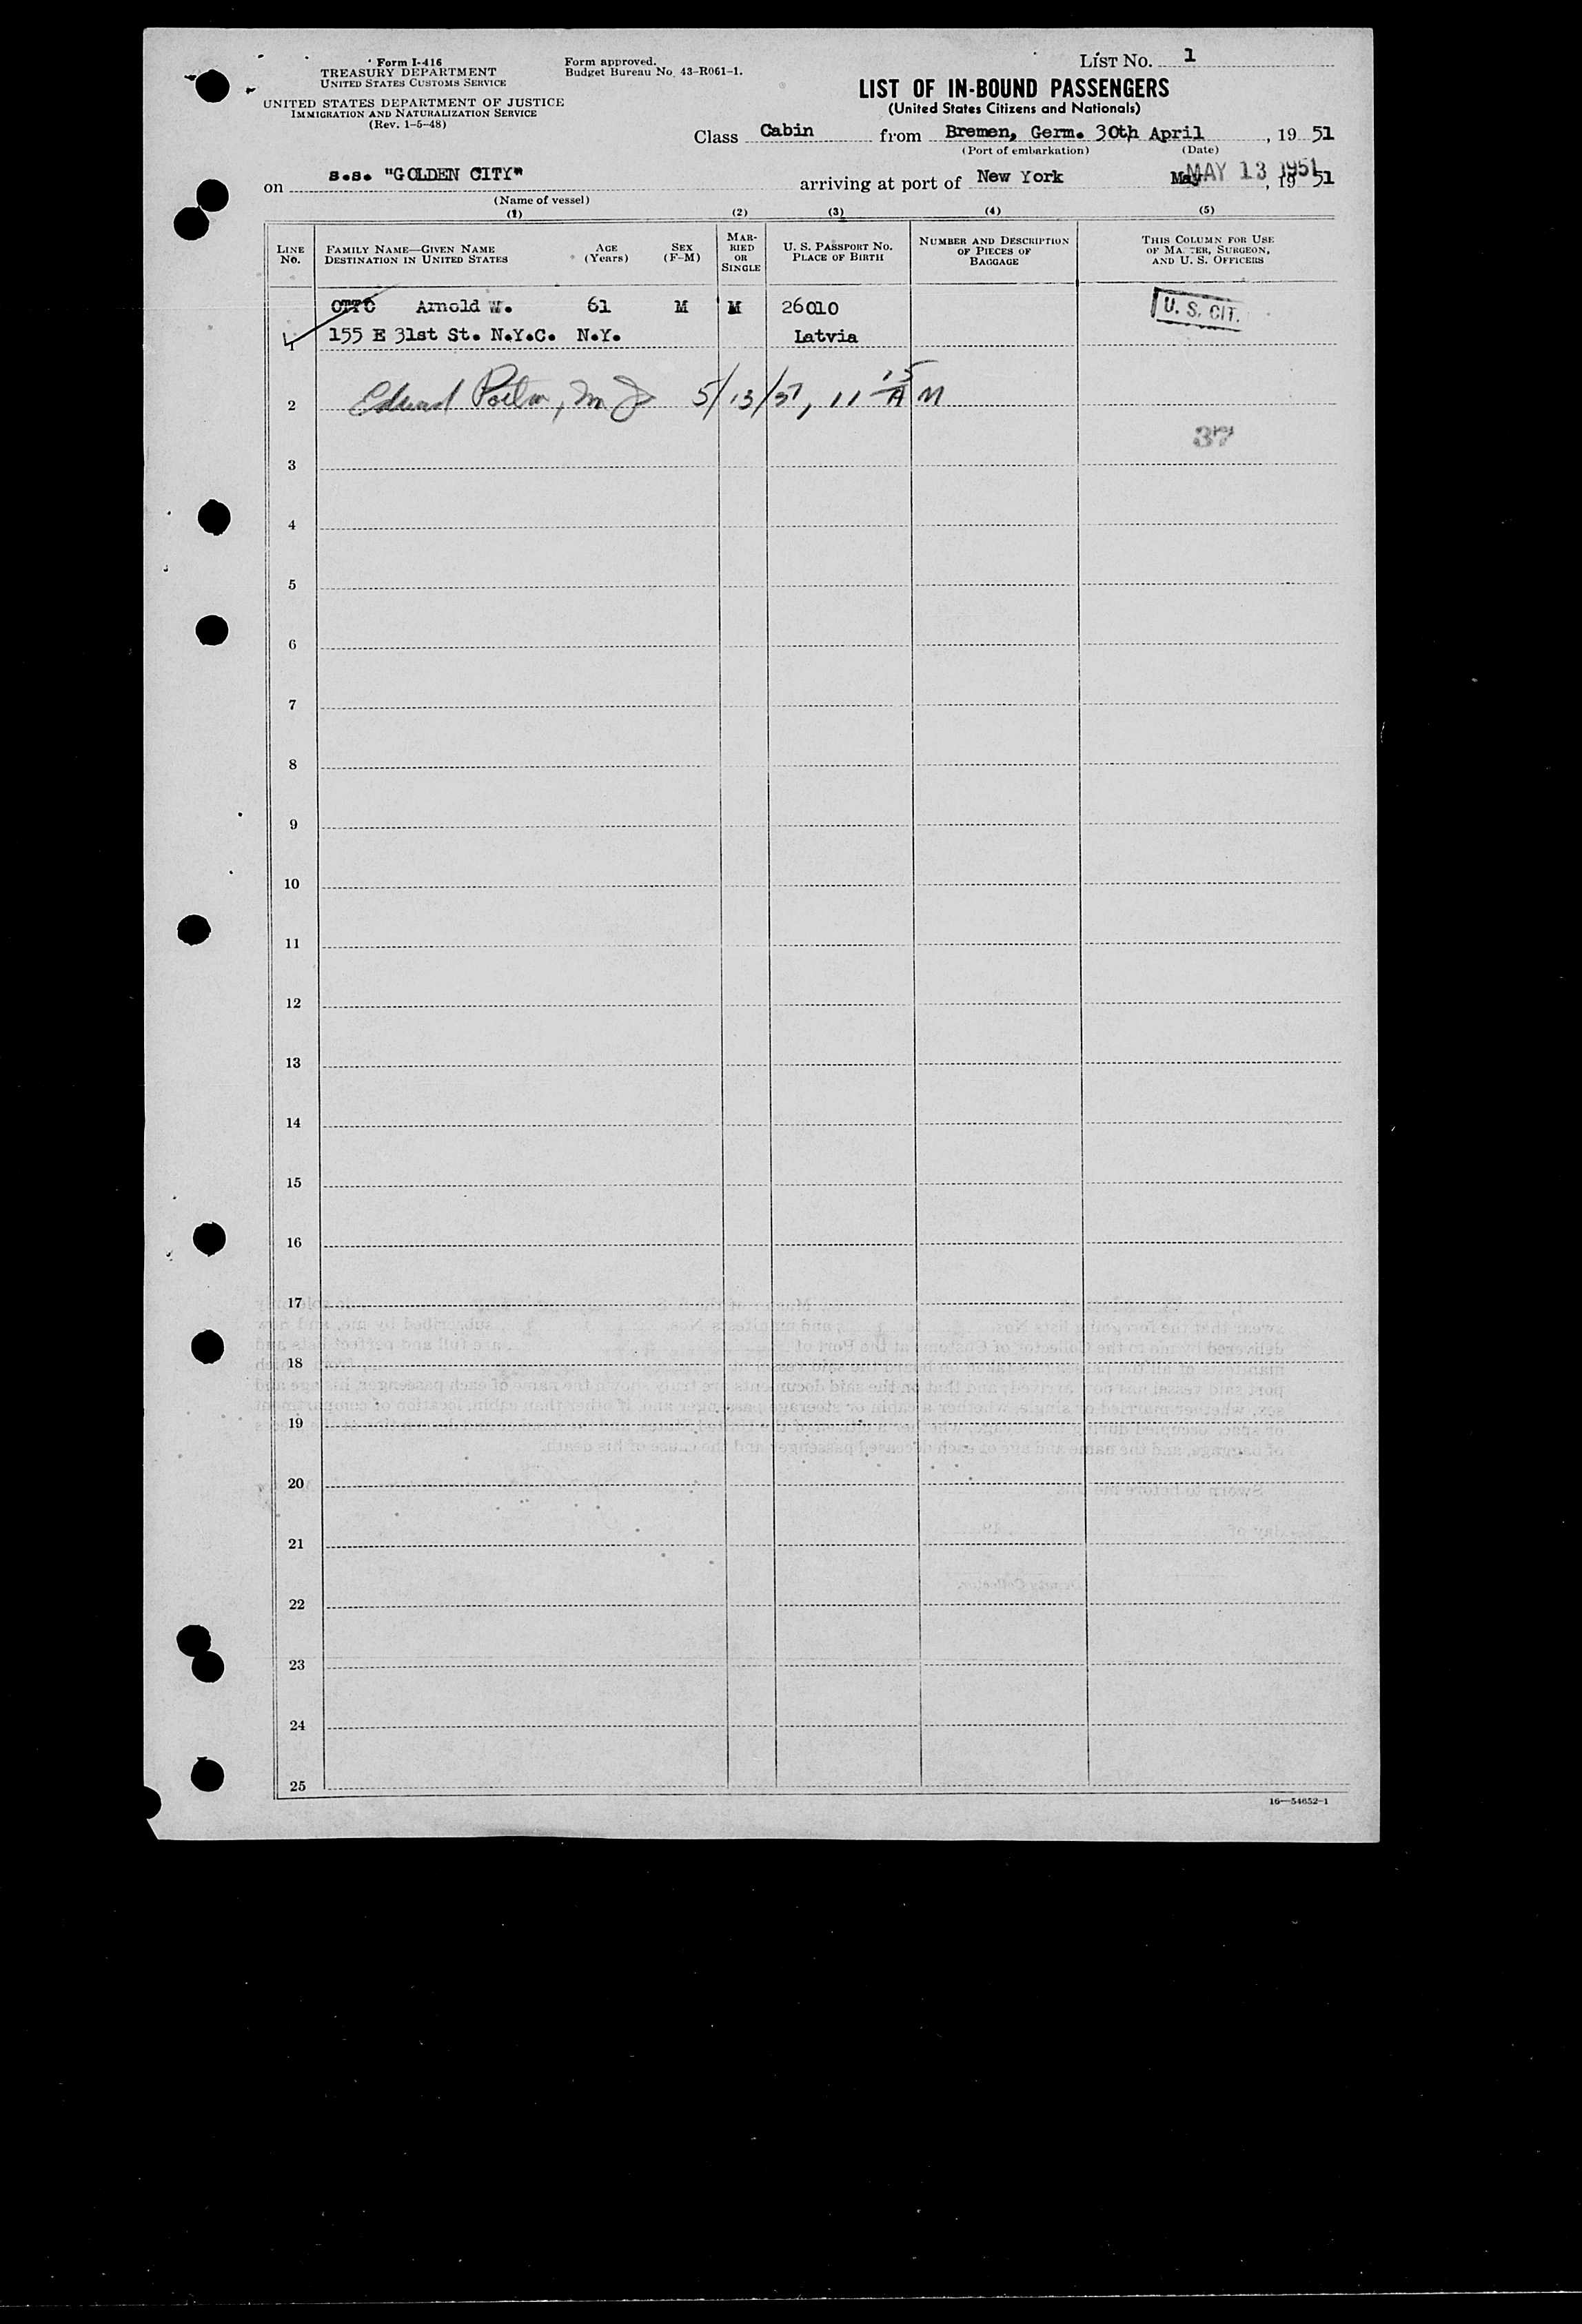 Form I-416
TREASURY DEPARTMENT
UNITED STATES CUSTOMS SERVICE
UNITED STATES DEPARTMENT OF JUSTICE
IMMIGRATION AND NATURALIZATION SERVICE
(Rev. 1-5-48)
Form approved.
Budget Bureau No. 43-R061-1.
LIST NO. 1
LIST OF IN-BOUND PASSENGERS
(United States Citizens and Nationals)
Class Cabin from Bremen, Germ. 30th April, 19 51
(Port of embarkation) (Date)
on s.s. "GOLDEN CITY" arriving at port of New York May MAY 13 1951, 19 51
(Name of vessel)
(1) (2) (3) (4) (5)
LINE NO.
FAMILY NAME—GIVEN NAME
DESTINATION IN UNITED STATES
AGE (Years)
SEX (F-M)
MARRIED OR SINGLE
U. S. PASSPORT NO.
PLACE OF BIRTH
NUMBER AND DESCRIPTION OF PIECES OF BAGGAGE
THIS COLUMN FOR USE OF MASTER, SURGEON, AND U. S. OFFICERS
OTTO Arnold W. 61 M M 26010 U. S. CIT.
1 155 E 31st St. N.Y.C. N.Y. Latvia
2 Edward M D 5/13/51, 11 15 A M
37
3
4
5
6
7
8
9
10
11
12
13
14
15
16
17
18
19
20
21
22
23
24
25
16—54652-1